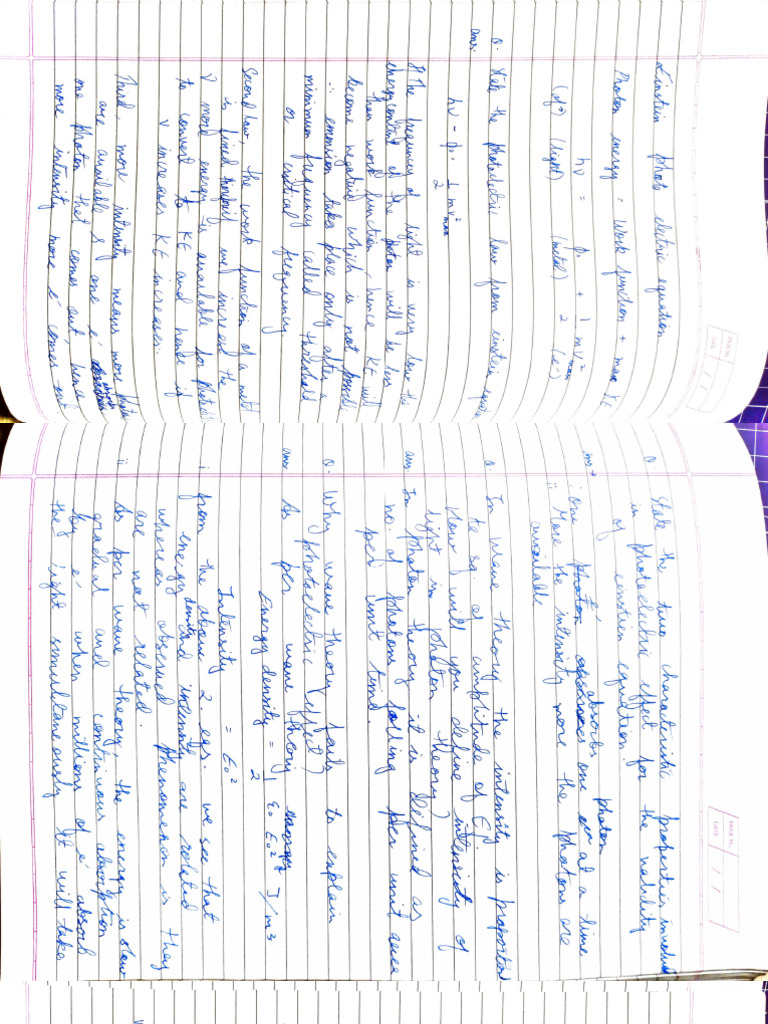 Einstein photo electric equation
Photon energy = Work function + max KE
hν = φ. + 1/2 mv²max
(of) (light) (metal) (e⁻)
Q. State the photoelectric law from einstein
ans. hν - φ. 1/2 mv²max
If The frequency of light is very low the
energy content of the photon will be less
than work function, hence KE will
become negative which is not possible
∴ emission takes place only after a
minimum frequency called threshold
or critical frequency
Second law, the work function of a metal
is fixed if we increase the
ν more energy is available for
to convert to KE and hence if
ν increases KE increases.
Third, more intensity means more
are available & one e⁻
one photon that comes out, hence
more intensity more e⁻ comes out
PAGE NO.
DATE / /
Q. State the two characteristic properties involved
in photoelectric effect for the validity
of einstien equation?
ans→ i One e⁻ absorbs one photon at a time
ii More the intensity more the photons are
available
Q. In wave theory the intensity is proportional
to sq of amplitude of E,
How will you define intensity of
light in photon theory?
ans In photon theory it is defined as
no. of photons falling per unit area
per unit time.
Q. Why wave theory fails to explain
photoelectric effect?
ans As per wave theory
Energy density = 1/2 ε₀ E₀² J/m3
Intensity = E₀²
i from the above 2 eqs. we see that
energy density and intensity are related
whereas observed phenomenon is they
are not related.
ii As per wave theory, the energy is slow
gradual and continuous absorption
by e⁻ when millions of e⁻ absorb
the light simultaneously It will take
PAGE NO.
DATE / /